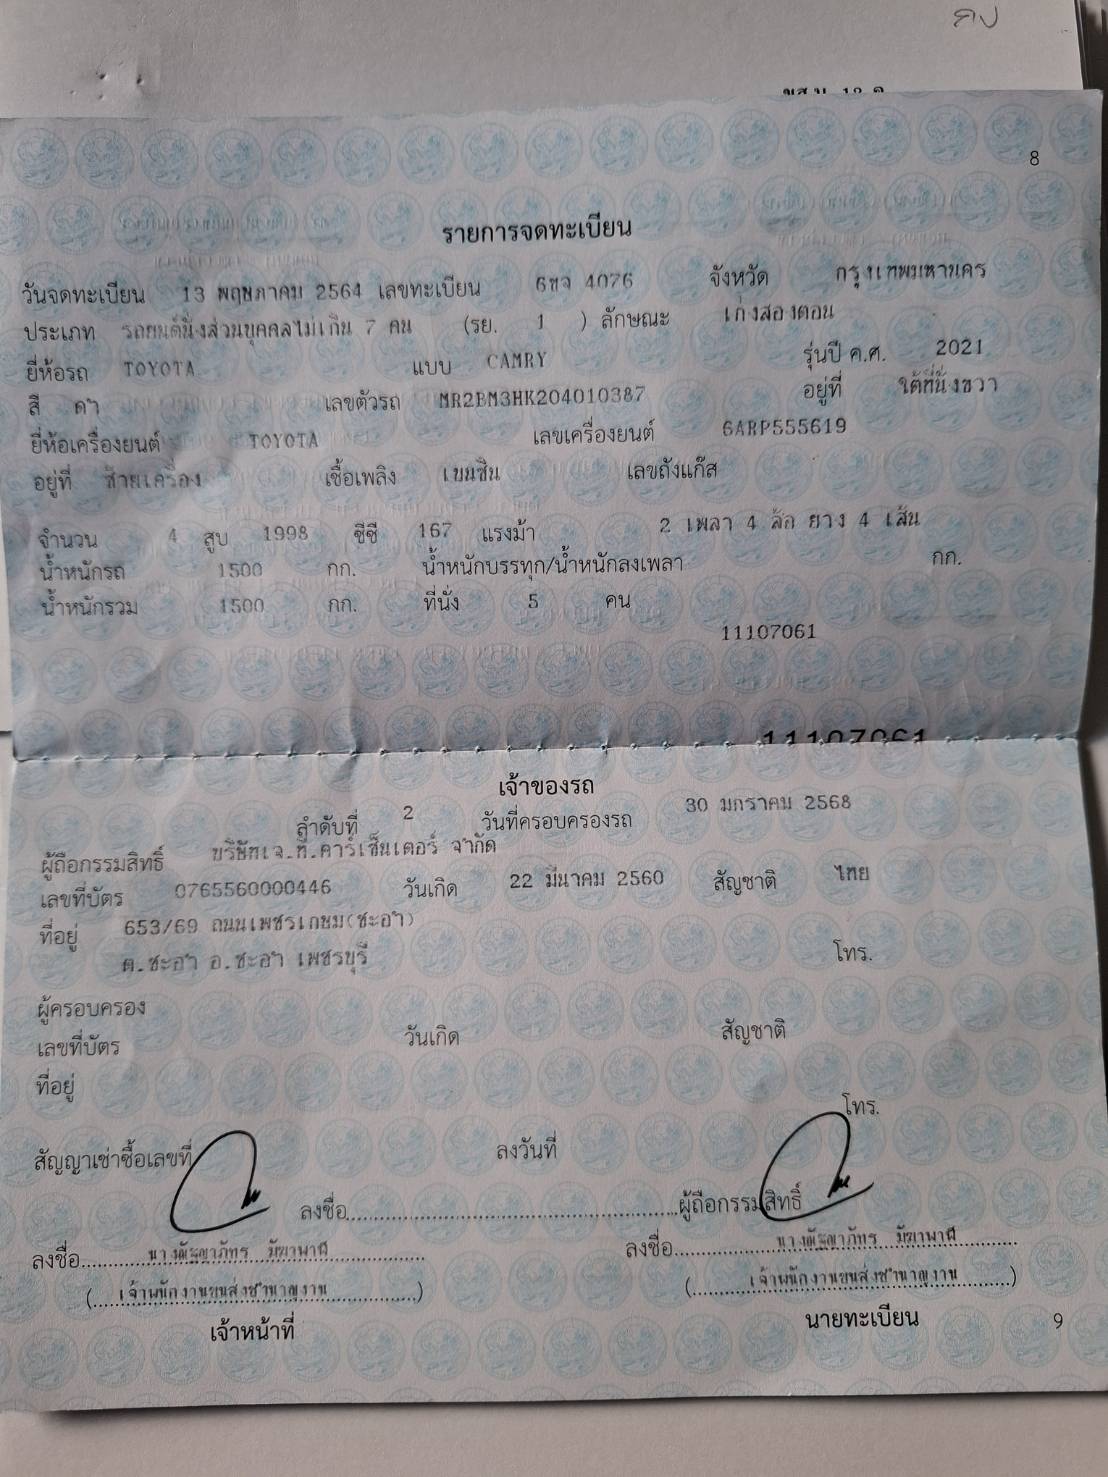 8
รายการจดทะเบียน
วันจดทะเบียน 13 พฤษภาคม 2564 เลขทะเบียน 6ขจ 4076 จังหวัด กรุงเทพมหานคร
ประเภท รถยนต์นั่งส่วนบุคคลไม่เกิน 7 คน (รย. 1 ) ลักษณะ เก๋งสองตอน
ยี่ห้อรถ TOYOTA แบบ CAMRY รุ่นปี ค.ศ. 2021
สี ดำ เลขตัวรถ MR2BM3HK204010387 อยู่ที่ ใต้ที่นั่งขวา
ยี่ห้อเครื่องยนต์ TOYOTA เลขเครื่องยนต์ 6ARP555619
อยู่ที่ ซ้ายเครื่อง เชื้อเพลิง เบนซิน เลขถังแก๊ส
จำนวน 4 สูบ 1998 ซีซี 167 แรงม้า 2 เพลา 4 ล้อ ยาง 4 เส้น
น้ำหนักรถ 1500 กก. น้ำหนักบรรทุก/น้ำหนักลงเพลา กก.
น้ำหนักรวม 1500 กก. ที่นั่ง 5 คน
11107061
11107061
เจ้าของรถ
ลำดับที่ 2 วันที่ครอบครองรถ 30 มกราคม 2568
ผู้ถือกรรมสิทธิ์ บริษัทเจ.ที.คาร์เซ็นเตอร์ จำกัด
เลขที่บัตร 0765560000446 วันเกิด 22 มีนาคม 2560 สัญชาติ ไทย
ที่อยู่ 653/69 ถนนเพชรเกษม(ชะอำ)
ต.ชะอำ อ.ชะอำ เพชรบุรี โทร.
ผู้ครอบครอง
เลขที่บัตร วันเกิด สัญชาติ
ที่อยู่
โทร.
สัญญาเช่าซื้อเลขที่ ลงวันที่
ลงชื่อ ผู้ถือกรรมสิทธิ์
ลงชื่อ ลงชื่อ
(เจ้าพนักงานขนส่งชำนาญงาน) (เจ้าพนักงานขนส่งชำนาญงาน)
เจ้าหน้าที่ นายทะเบียน 9